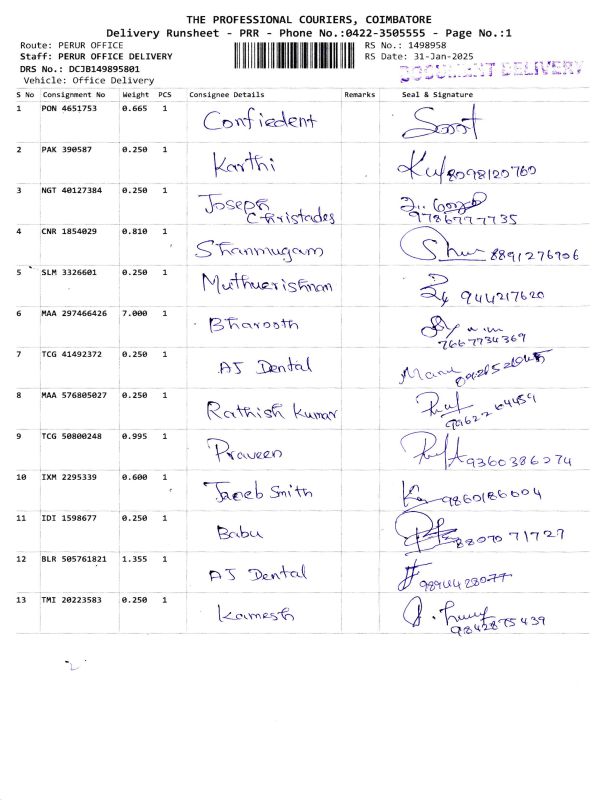 THE PROFESSIONAL COURIERS, COIMBATORE
Delivery Runsheet - PRR - Phone No.:0422-3505555 - Page No.:1
Route: PERUR OFFICE RS No.: 1498958
Staff: PERUR OFFICE DELIVERY RS Date: 31-Jan-2025
DRS No.: DCJB149895801 DOCUMENT DELIVERY
Vehicle: Office Delivery
S No Consignment No Weight PCS Consignee Details Remarks Seal & Signature
1 PON 4651753 0.665 1 Confiedent
2 PAK 390587 0.250 1 Karthi 8098120760
3 NGT 40127384 0.250 1 Joseph
Christades 9786777735
4 CNR 1854029 0.810 1 Shanmugam 8891276906
5 SLM 3326601 0.250 1 Muthuerishnan 944217620
6 MAA 297466426 7.000 1 Bharooth
7667734369
7 TCG 41492372 0.250 1 AJ Dental
8 MAA 576805027 0.250 1 Rathish Kumar
9 TCG 50800248 0.995 1 Praveen 9360386274
10 IXM 2295339 0.600 1 Jaceb Smith 9860186004
11 IDI 1598677 0.250 1 Babu 8807071727
12 BLR 505761821 1.355 1 AJ Dental
13 TMI 20223583 0.250 1 Kamesh
9842875439